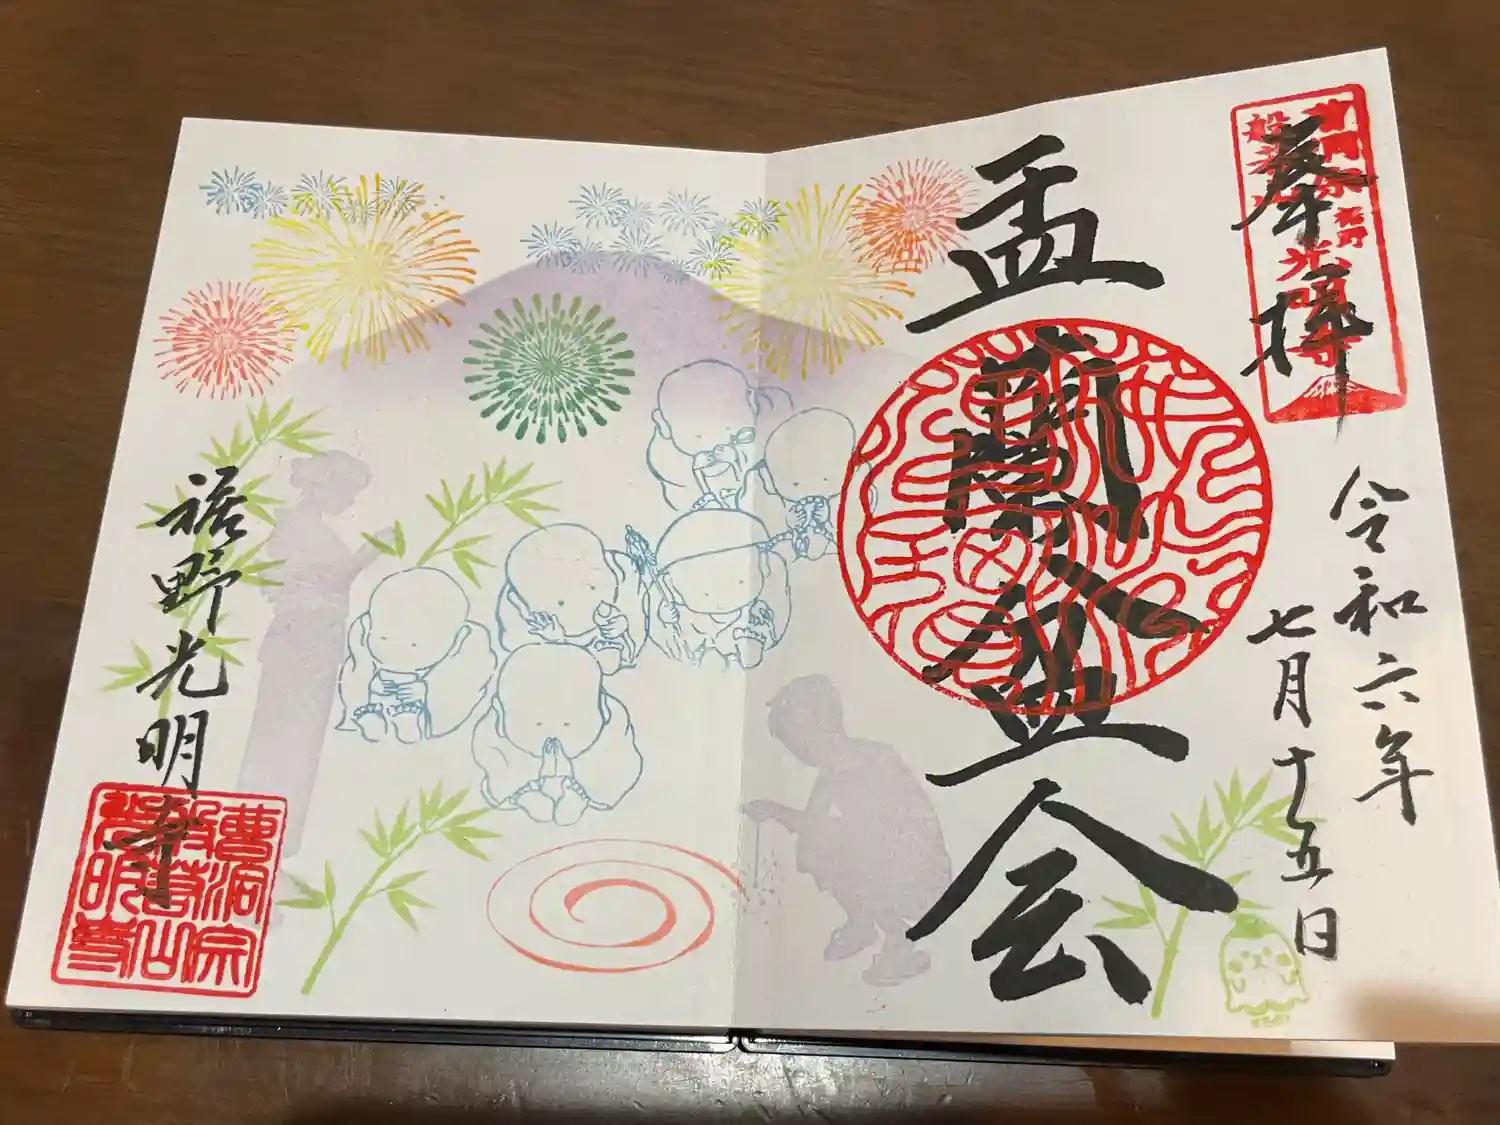 奉拝
令和六年
七月十五日
盂蘭盆会
裾野光明寺
曹洞宗
般若山
光明寺